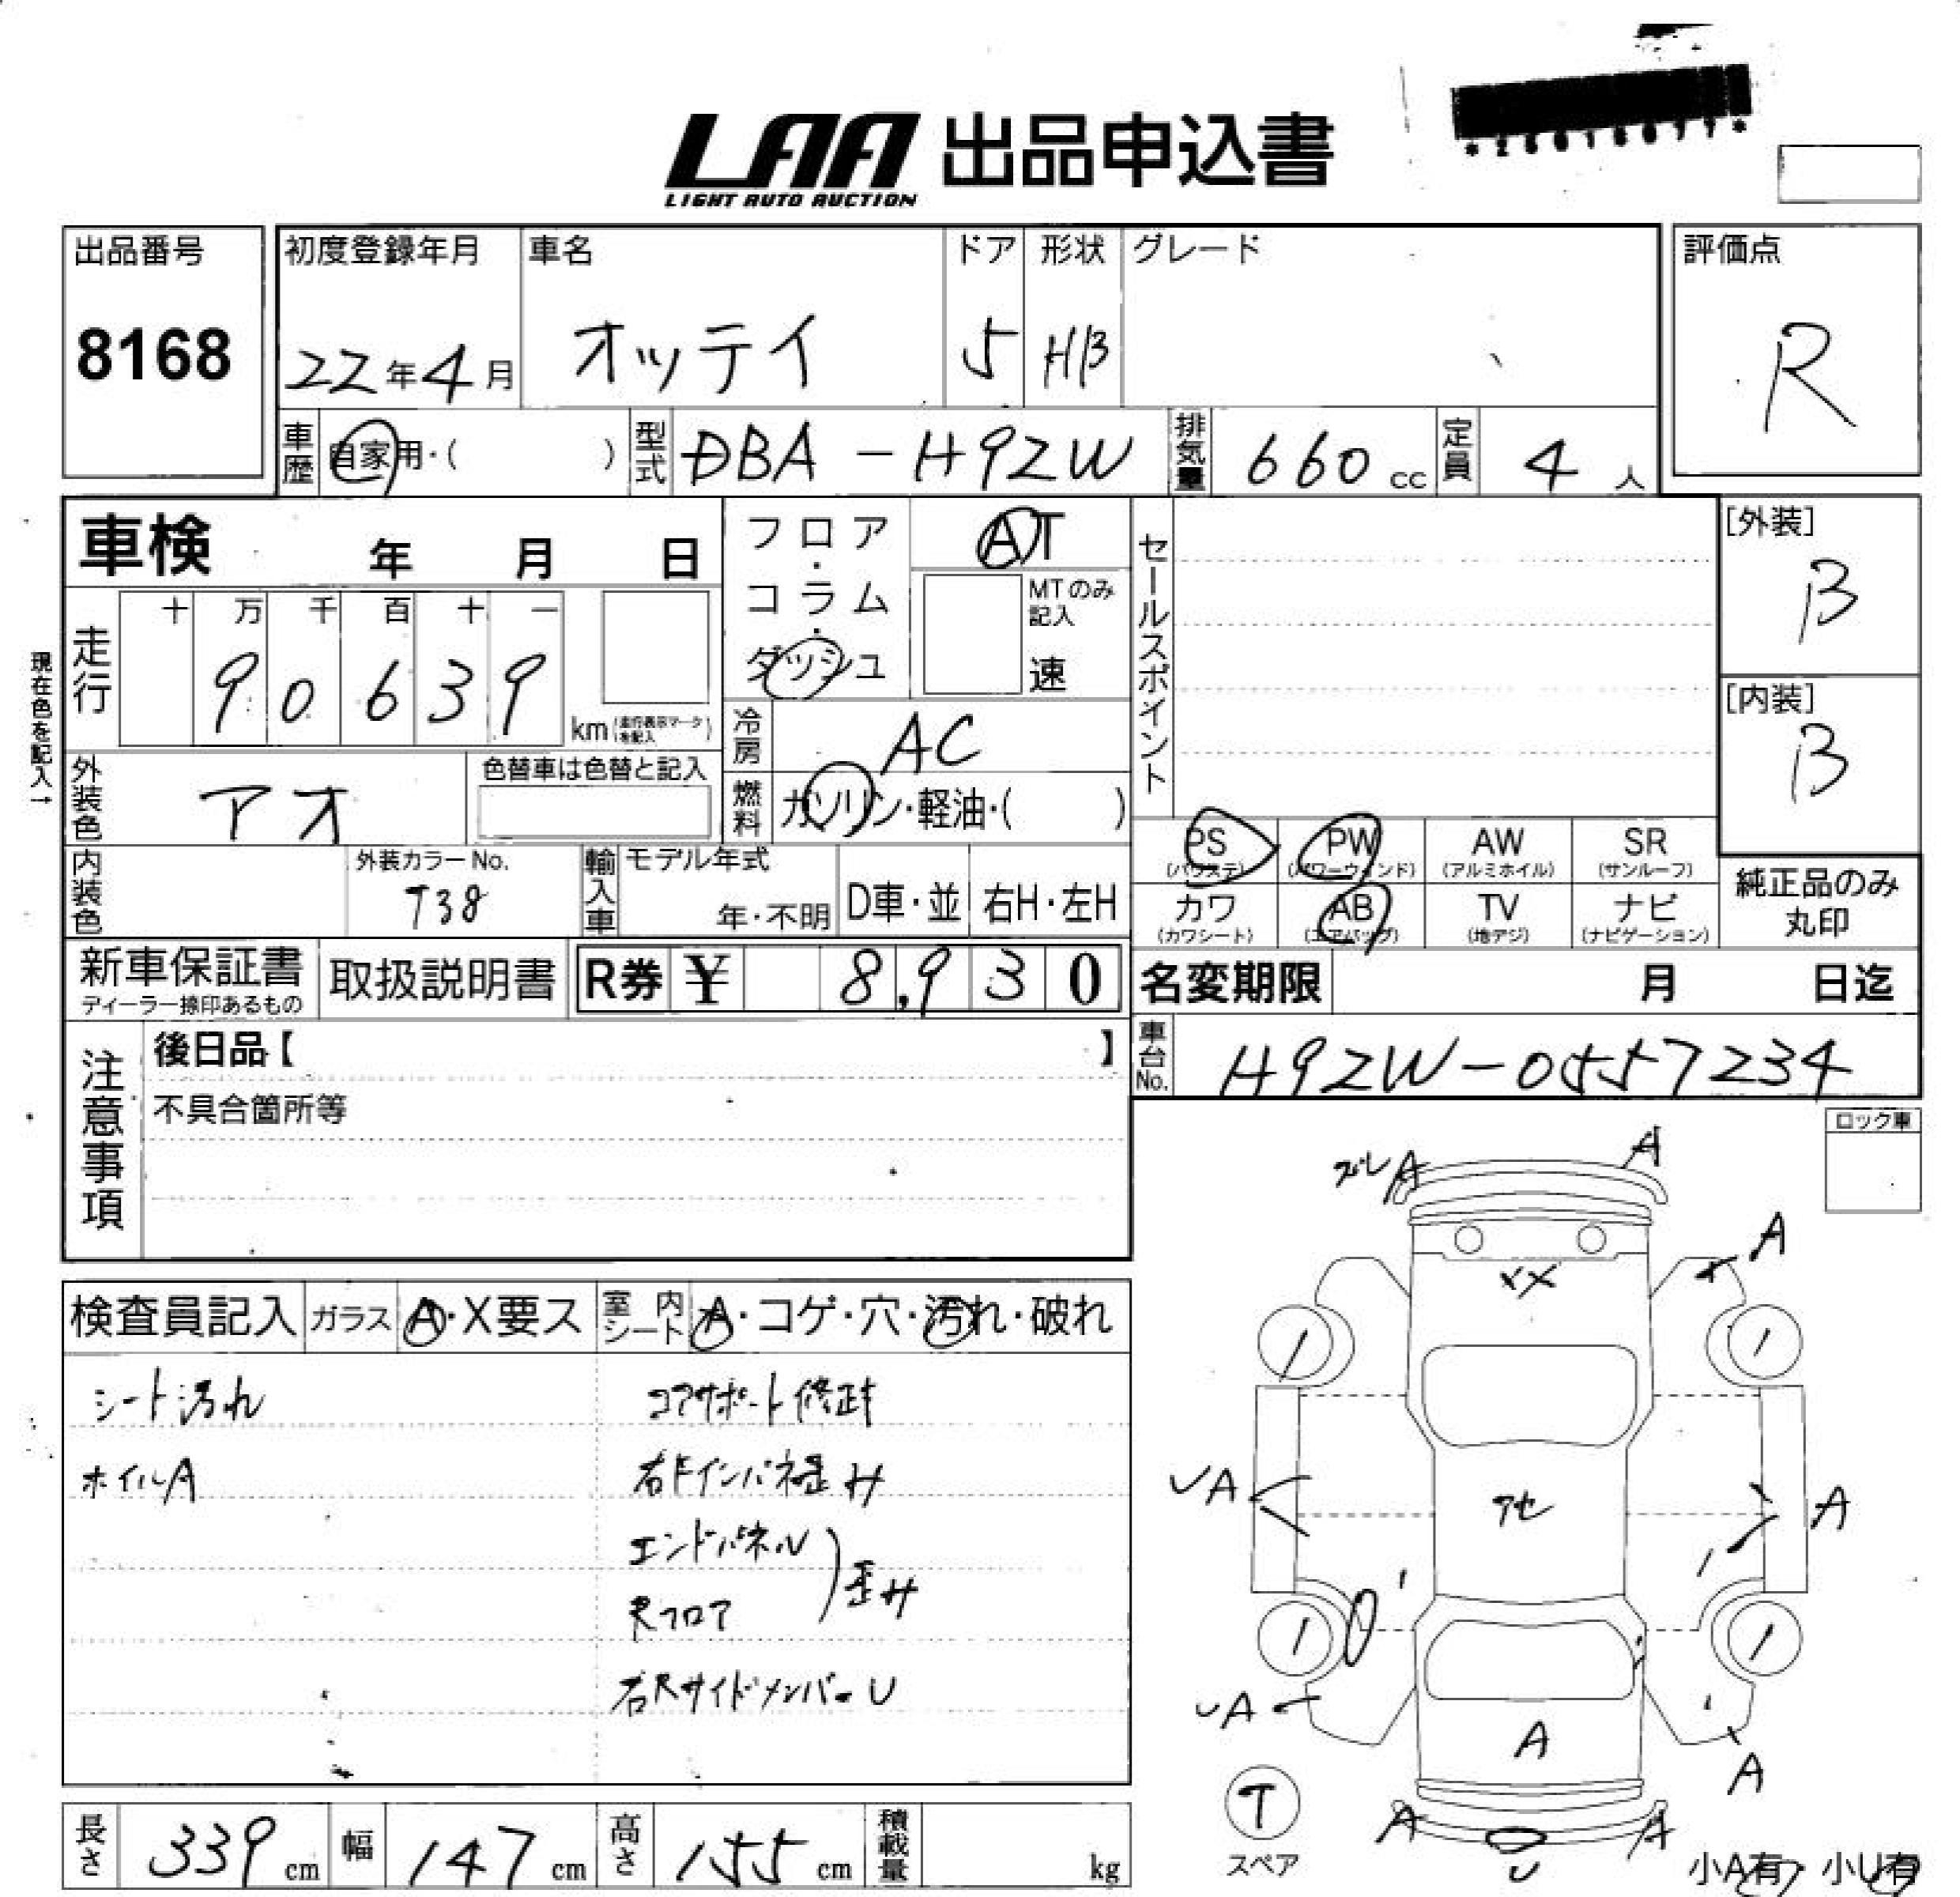 LAA 出品申込書
LIGHT AUTO AUCTION
出品番号
8168
初度登録年月
22年4月
車名
オッテイ
ドア
5
形状
HB
グレード
評価点
R
車歴
自家用・( )
型式
DBA-H92W
排気量
660 cc
定員
4 人
車検 年 月 日
フロア・コラム・ダッシュ
AT
MTのみ記入
速
セールスポイント
[外装]
B
走行
十 万 千 百 十 一
9 0 6 3 9
km (走行表示マークを記入)
現在色を記入→
冷房
AC
[内装]
B
外装色
アオ
色替車は色替と記入
燃料
ガソリン・軽油・( )
PS (パワステ)
PW (パワーウインド)
AW (アルミホイル)
SR (サンルーフ)
カワ (カワシート)
AB (エアバッグ)
TV (地デジ)
ナビ (ナビゲーション)
純正品のみ丸印
内装色
外装カラーNo.
T38
輸入車
モデル年式
年・不明
D車・並
右H・左H
新車保証書
ディーラー捺印あるもの
取扱説明書
R券 ¥ 8,930
名変期限 月 日迄
注意事項
後日品【 】
不具合箇所等
車台No.
H92W-0557234
ロック車
検査員記入
ガラス
A・X要ス
室内シート
A・コゲ・穴・汚れ・破れ
シート汚れ
ホイルA
コアサポート修正
右Fインパネ歪ミ
エンドパネル
Rフロア
歪ミ
右RサイドメンバーU
ズレA
A
A
XX
UA
アセ
A
UA
A
A
T
スペア
A
U
A
小A有・小U有
長さ
339 cm
幅
147 cm
高さ
155 cm
積載量
kg